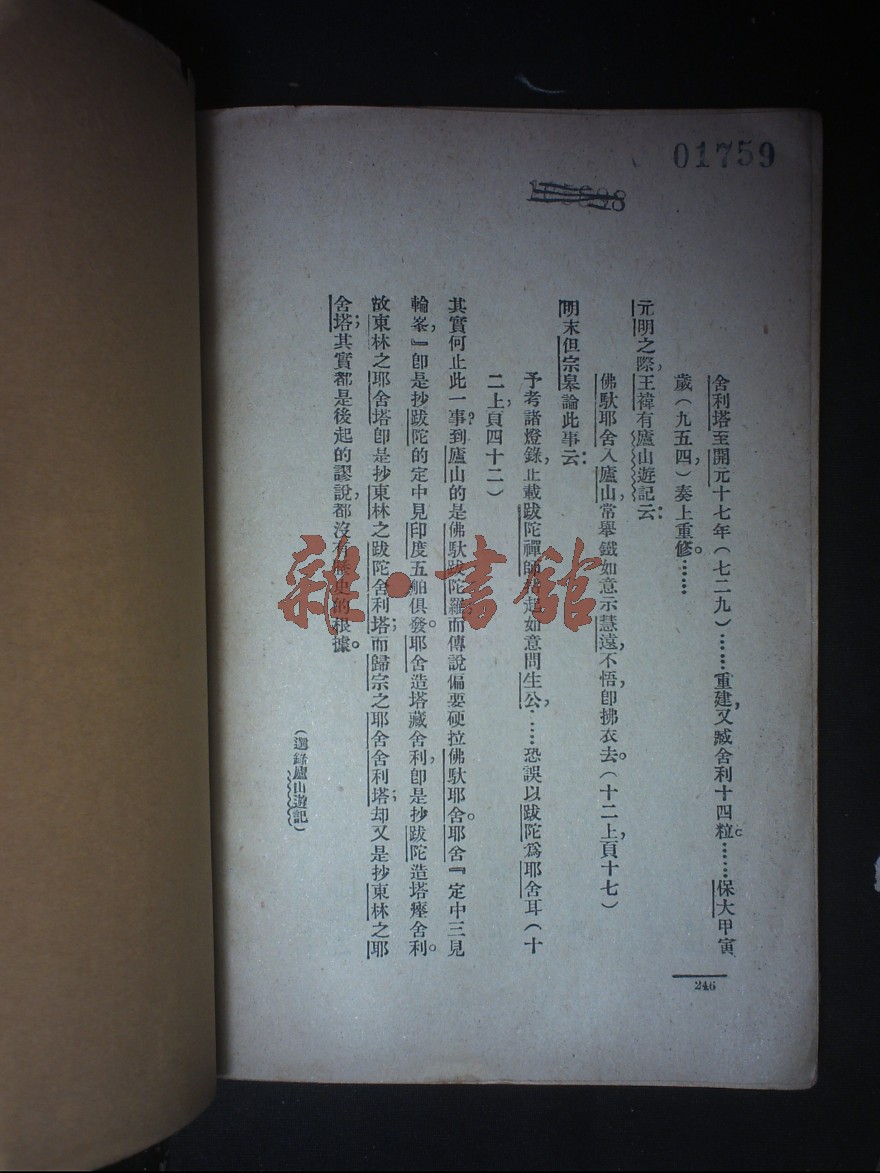 01759
舍利塔至開元十七年(七二九)……重建,又臧舍利十四粒。……保大甲寅
歲(九五四)奏上重修。……
元明之際,王褘有廬山遊記云:
佛馱耶舍入廬山,常舉鐵如意示慧遠,不悟,卽拂衣去。(十二上,頁十七)
明末但宗皋論此事云:
予考諸燈錄,止載跋陀禪師拈起如意問生公,……恐誤以跋陀爲耶舍耳(十
二上,頁四十二)
其實何止此一事?到廬山的是佛馱跋陀羅而傳說偏要硬拉佛馱耶舍。耶舍『定中三見
輪峯,』卽是抄跋陀的定中見印度五舶俱發。耶舍造塔藏舍利,卽是抄跋陀造塔瘞舍利。
故東林之耶舍塔卽是抄東林之跋陀舍利塔;而歸宗之耶舍舍利塔;却又是抄東林之耶
舍塔;其實都是後起的謬說,都沒有歷史的根據。
(選錄廬山遊記)
246
雜·書館